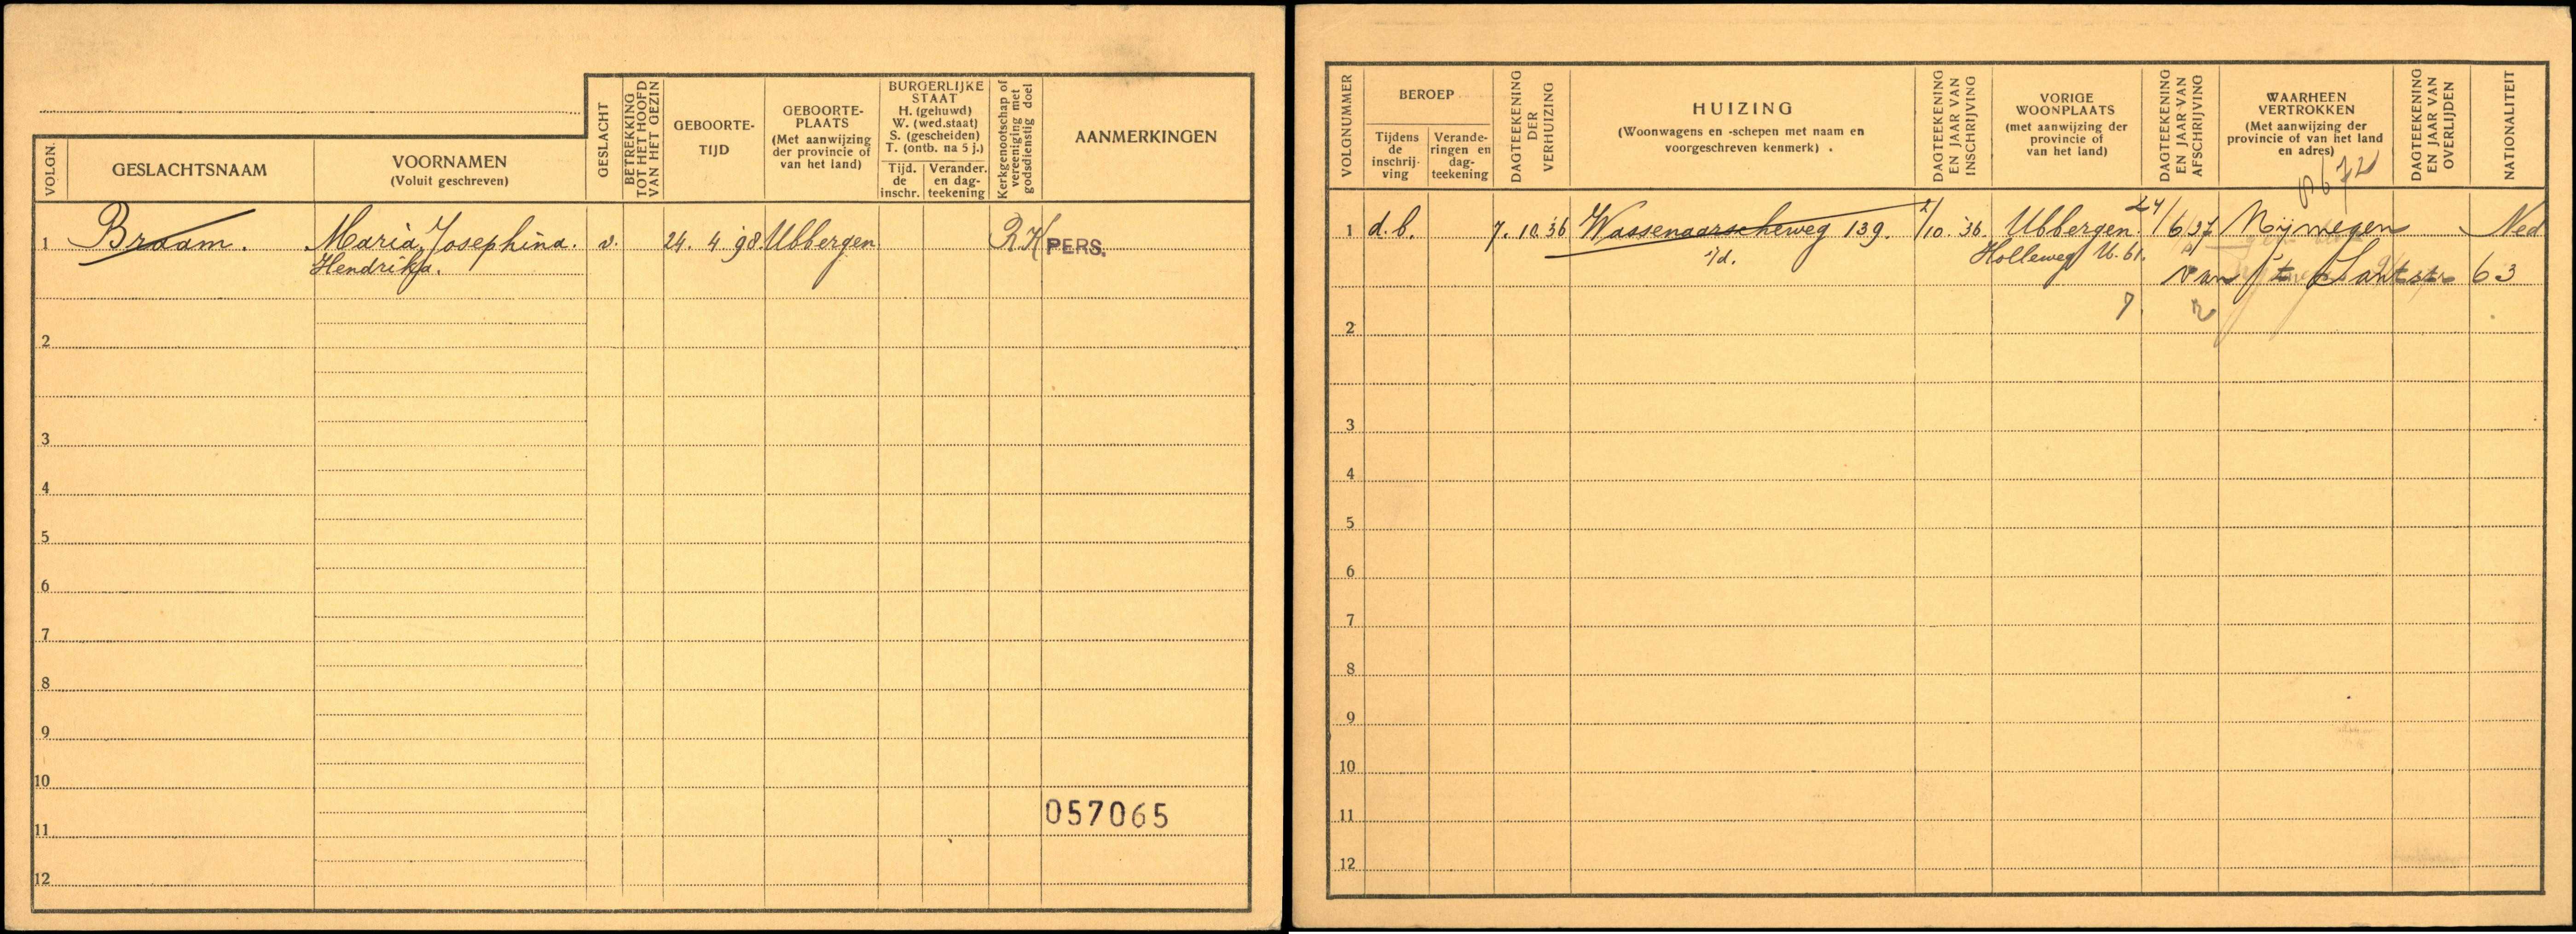 VOLGN.
GESLACHTSNAAM
VOORNAMEN
(Voluit geschreven)
GESLACHT
BETREKKING
TOT HET HOOFD
VAN HET GEZIN
GEBOORTE-
TIJD
GEBOORTE-
PLAATS
(Met aanwijzing
der provincie of
van het land)
BURGERLIJKE
STAAT
H. (gehuwd)
W. (wed.staat)
S. (gescheiden)
T. (ontb. na 5 j.)
Tijd.
de
inschr.
Verander.
en dag-
teekening
Kerkgenootschap of
vereeniging met
godsdienstig doel
AANMERKINGEN
1 Braam. Maria Josephina. v. 24. 4 '98 Ubbergen R.K PERS.
Hendrika.
2
3
4
5
6
7
8
9
10
057065
11
12
VOLGNUMMER
BEROEP
Tijdens
de
inschrij-
ving
Verande-
ringen en
dag-
teekening
DAGTEEKENING
DER
VERHUIZING
HUIZING
(Woonwagens en -schepen met naam en
voorgeschreven kenmerk)
DAGTEEKENING
EN JAAR VAN
INSCHRIJVING
VORIGE
WOONPLAATS
(met aanwijzing der
provincie of
van het land)
DAGTEEKENING
EN JAAR VAN
AFSCHRIJVING
WAARHEEN
VERTROKKEN
(Met aanwijzing der
provincie of van het land
en adres)
DAGTEEKENING
EN JAAR VAN
OVERLIJDEN
NATIONALITEIT
1 d.b. 7. 10.36 Wassenaarscheweg 139. /10. '36. Ubbergen. 24/6 '37 Nijmegen Ned
Holleweg U. 61.
van 't Santstr 63
2
3
4
5
6
7
8
9
10
11
12